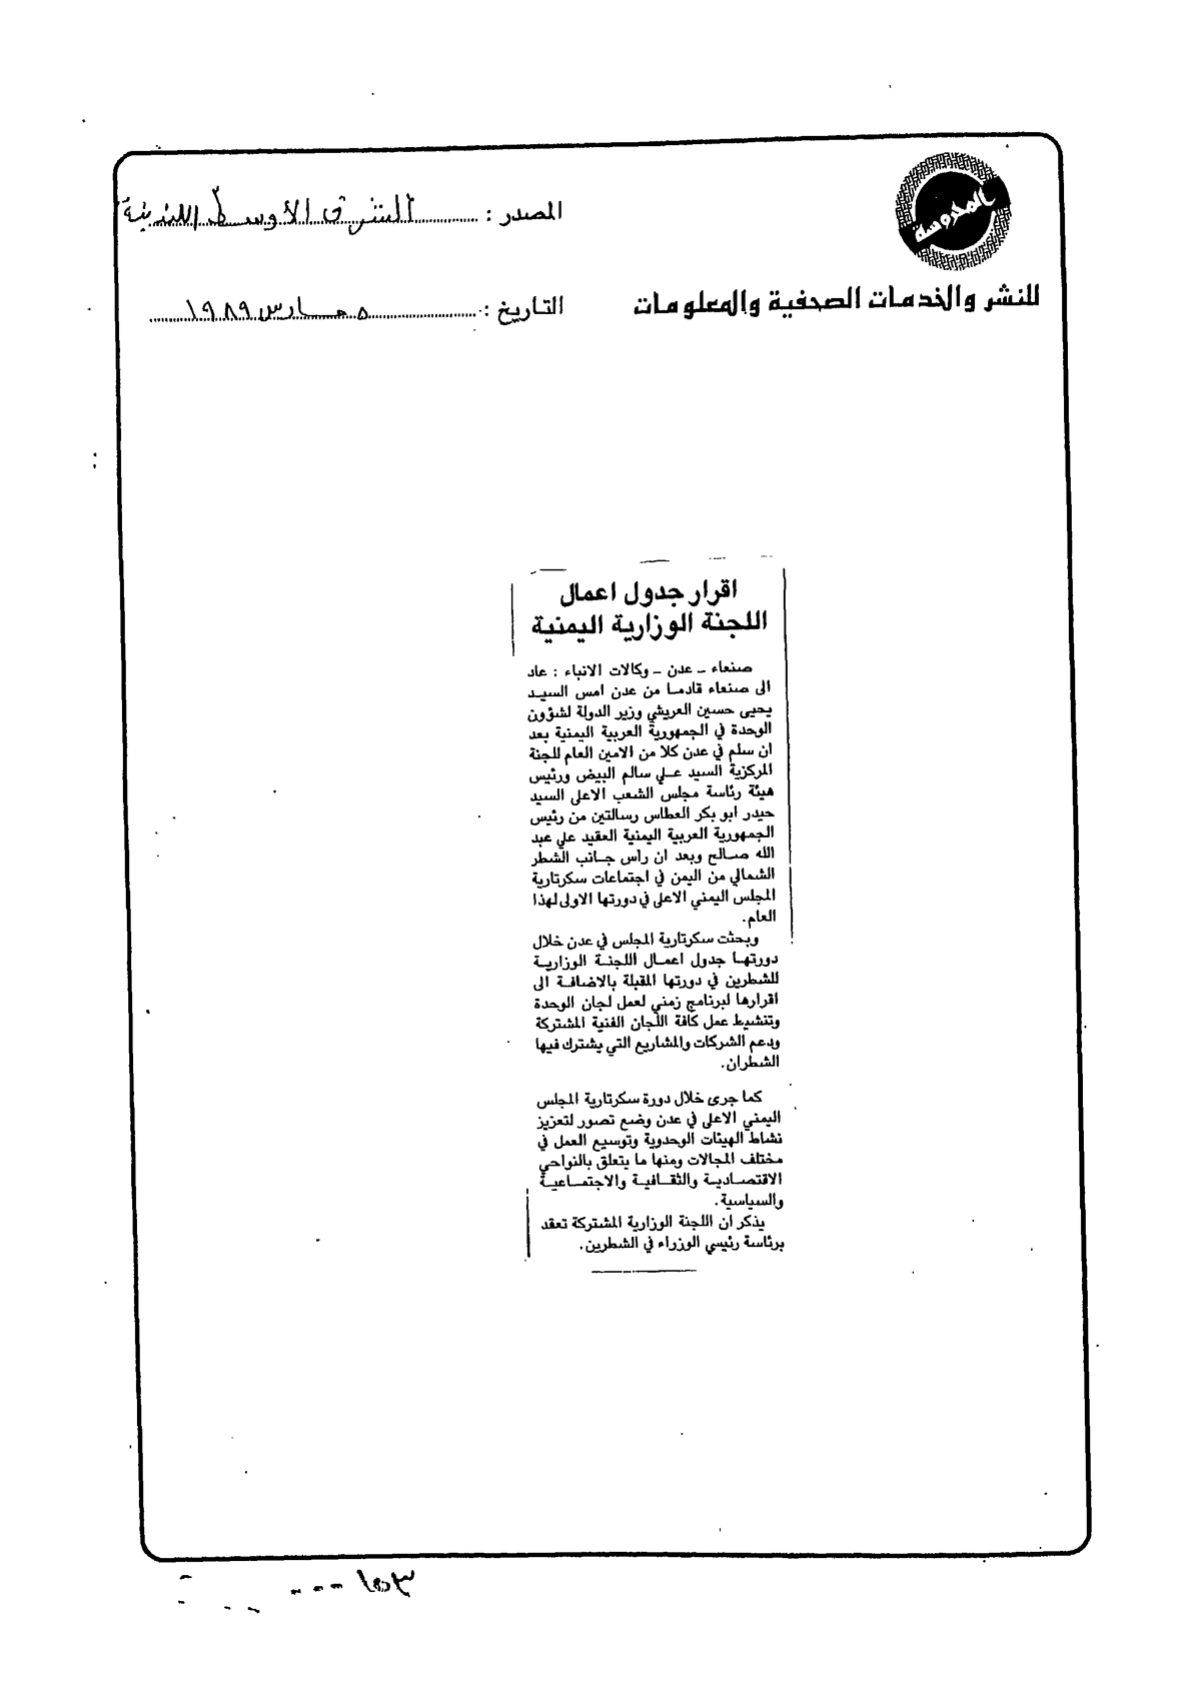 المحروسة
للنشر والخدمات الصحفية والمعلومات
المصدر : الشرق الأوسط اللندنية
التاريخ : ٥ مارس ١٩٨٩
اقرار جدول اعمال
اللجنة الوزارية اليمنية
صنعاء ــ عدن ــ وكالات الانباء : عاد
الى صنعاء قادما من عدن امس السيد
يحيى حسين العريشي وزير الدولة لشؤون
الوحدة في الجمهورية العربية اليمنية بعد
ان سلم في عدن كلا من الامين العام للجنة
المركزية السيد علي سالم البيض ورئيس
هيئة رئاسة مجلس الشعب الاعلى السيد
حيدر ابو بكر العطاس رسالتين من رئيس
الجمهورية العربية اليمنية العقيد علي عبد
الله صالح وبعد ان رأس جانب الشطر
الشمالي من اليمن في اجتماعات سكرتارية
المجلس اليمني الاعلى في دورتها الاولى لهذا
العام.
وبحثت سكرتارية المجلس في عدن خلال
دورتها جدول اعمال اللجنة الوزارية
للشطرين في دورتها المقبلة بالاضافة الى
اقرارها لبرنامج زمني لعمل لجان الوحدة
وتنشيط عمل كافة اللجان الفنية المشتركة
ودعم الشركات والمشاريع التي يشترك فيها
الشطران.
كما جرى خلال دورة سكرتارية المجلس
اليمني الاعلى في عدن وضع تصور لتعزيز
نشاط الهيئات الوحدوية وتوسيع العمل في
مختلف المجالات ومنها ما يتعلق بالنواحي
الاقتصادية والثقافية والاجتماعية
والسياسية.
يذكر ان اللجنة الوزارية المشتركة تعقد
برئاسة رئيسي الوزراء في الشطرين.